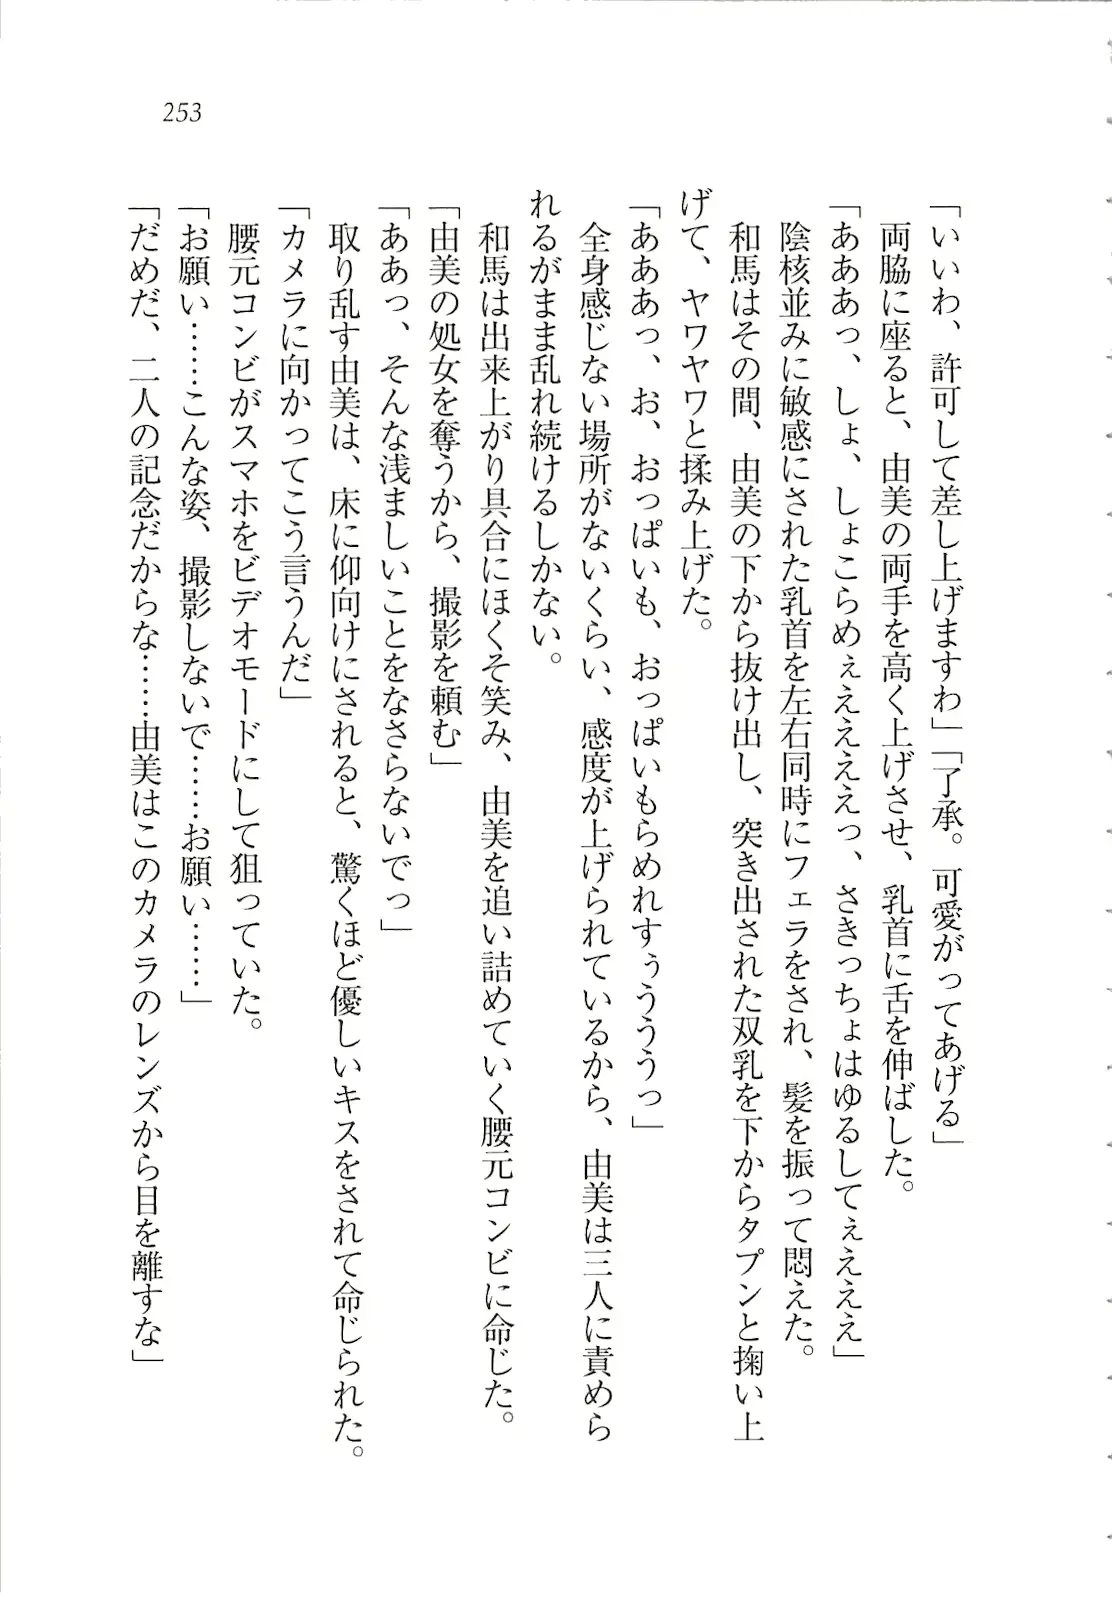 253
「いいわ、許可して差し上げますわ」「了承。可愛がってあげる」
両脇に座ると、由美の両手を高く上げさせ、乳首に舌を伸ばした。
「あああっ、しょ、しょこらめぇええええっ、さきっちょはゆるしてぇえええ」
陰核並みに敏感にされた乳首を左右同時にフェラをされ、髪を振って悶えた。
和馬はその間、由美の下から抜け出し、突き出された双乳を下からタプンと掬い上
げて、ヤワヤワと揉み上げた。
「あああっ、お、おっぱいも、おっぱいもらめれすぅうううっ」
全身感じない場所がないくらい、感度が上げられているから、由美は三人に責めら
れるがまま乱れ続けるしかない。
和馬は出来上がり具合にほくそ笑み、由美を追い詰めていく腰元コンビに命じた。
「由美の処女を奪うから、撮影を頼む」
「ああっ、そんな浅ましいことをなさらないでっ」
取り乱す由美は、床に仰向けにされると、驚くほど優しいキスをされて命じられた。
「カメラに向かってこう言うんだ」
腰元コンビがスマホをビデオモードにして狙っていた。
「お願い……こんな姿、撮影しないで……お願い……」
「だめだ、二人の記念だからな……由美はこのカメラのレンズから目を離すな」